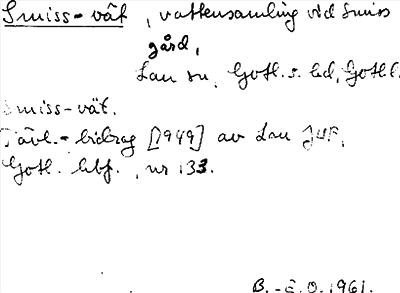 Smiss-vät, vattensamling vid Smiss
gård,
Lau sn, Gotl. s. hd, Gotl l.
Smiss-vät.
Tävl.-bidrag [1949] av Lau JUF,
Gotl. hbf., nr 133.
B.-E.O. 1961.